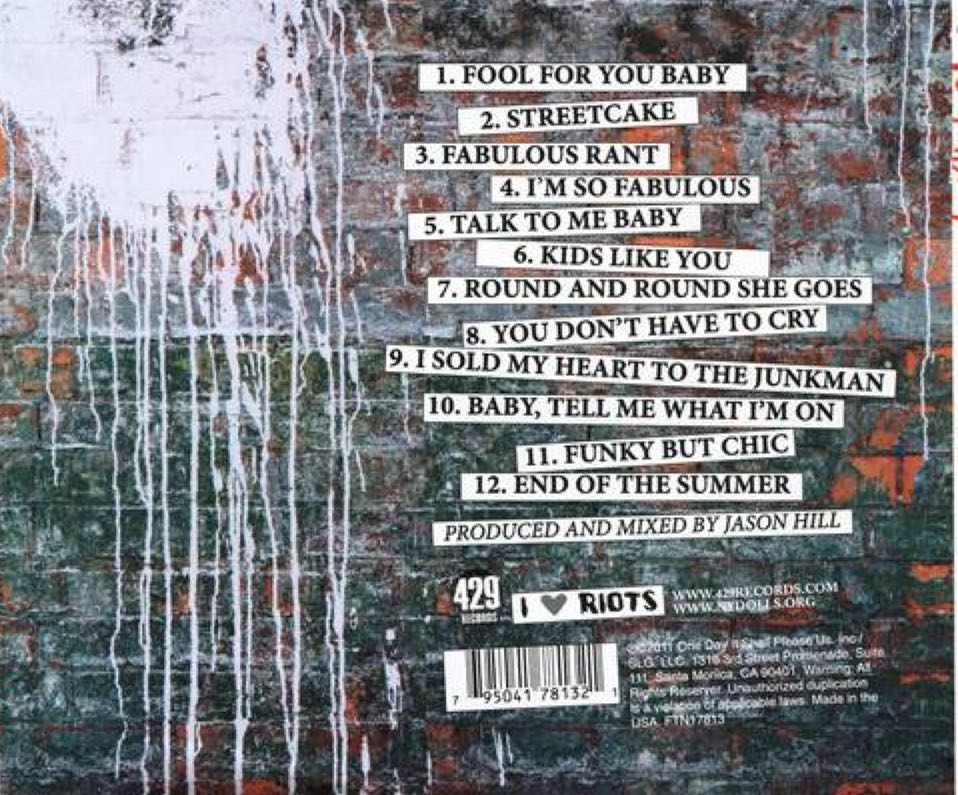 1. FOOL FOR YOU BABY
2. STREETCAKE
3. FABULOUS RANT
4. I'M SO FABULOUS
5. TALK TO ME BABY
6. KIDS LIKE YOU
7. ROUND AND ROUND SHE GOES
8. YOU DON'T HAVE TO CRY
9. I SOLD MY HEART TO THE JUNKMAN
10. BABY, TELL ME WHAT I'M ON
11. FUNKY BUT CHIC
12. END OF THE SUMMER
PRODUCED AND MIXED BY JASON HILL
429
RECORDS
I ♥ RIOTS
WWW.429RECORDS.COM
WWW.NYDOLLS.ORG
7 95041 78132 1
©2011 One Day It Shall Please Us, Inc/
SLG, LLC. 1316 3rd Street Promenade, Suite
111, Santa Monica, CA 90401. Warning: All
Rights Reserver. Unauthorized duplication
is a violation of applicable laws. Made in the
USA. FTN17813